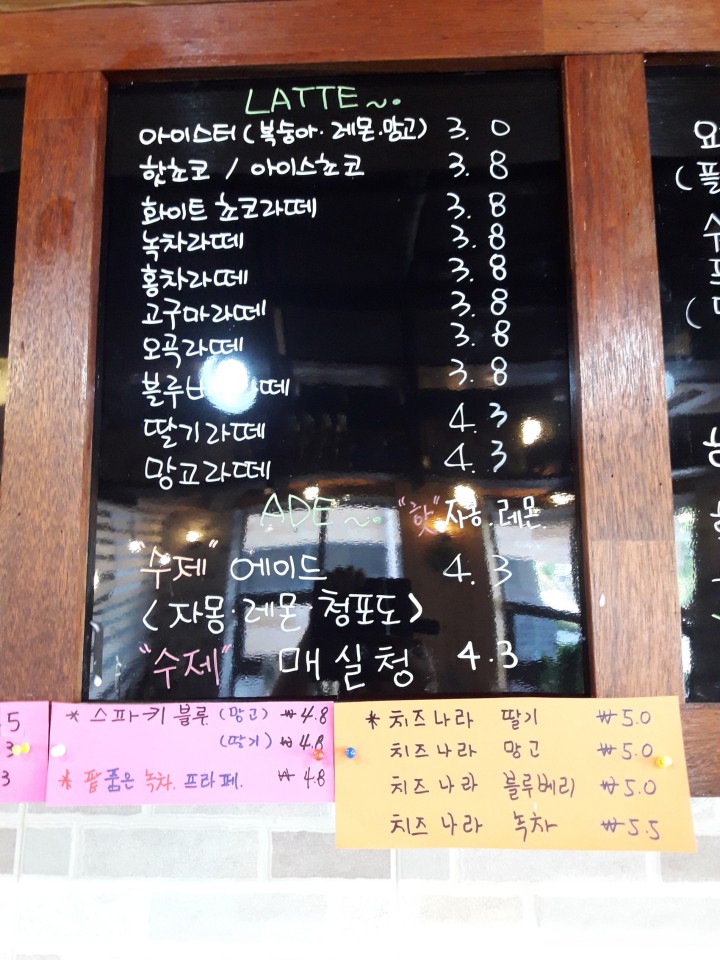 LATTE~.
아이스터(복숭아·레몬·망고) 3.0
핫초코 / 아이스초코 3.8
화이트 초코라떼 3.8
녹차라떼 3.8
홍차라떼 3.8
고구마라떼 3.8
오곡라떼 3.8
3.8
딸기라떼 4.3
망고라떼 4.3
ADE~. "핫" 자몽.레몬.
"수제" 에이드 4.3
(자몽·레몬·청포도)
"수제" 매실청 4.3
* 스파키 블루 (망고) ₩4.8
(딸기) ₩4.8
* 팥품은 녹차. 프라페. ₩4.8
* 치즈나라 딸기 ₩5.0
치즈나라 망고 ₩5.0
치즈나라 블루베리 ₩5.0
치즈나라 녹차 ₩5.5